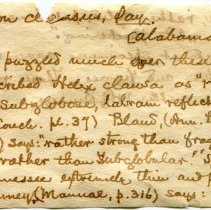 on cl Day.
(Alabama
puzzled much over these
scribed Helix clausa as "
Subglobose, labrum reflect
Couch. pl. 37) Bland, (Ann.
) Says: "rather strong than fra
rather than Subglobular"
nessee extremely thin and
ney, (Manual, p. 316) says: